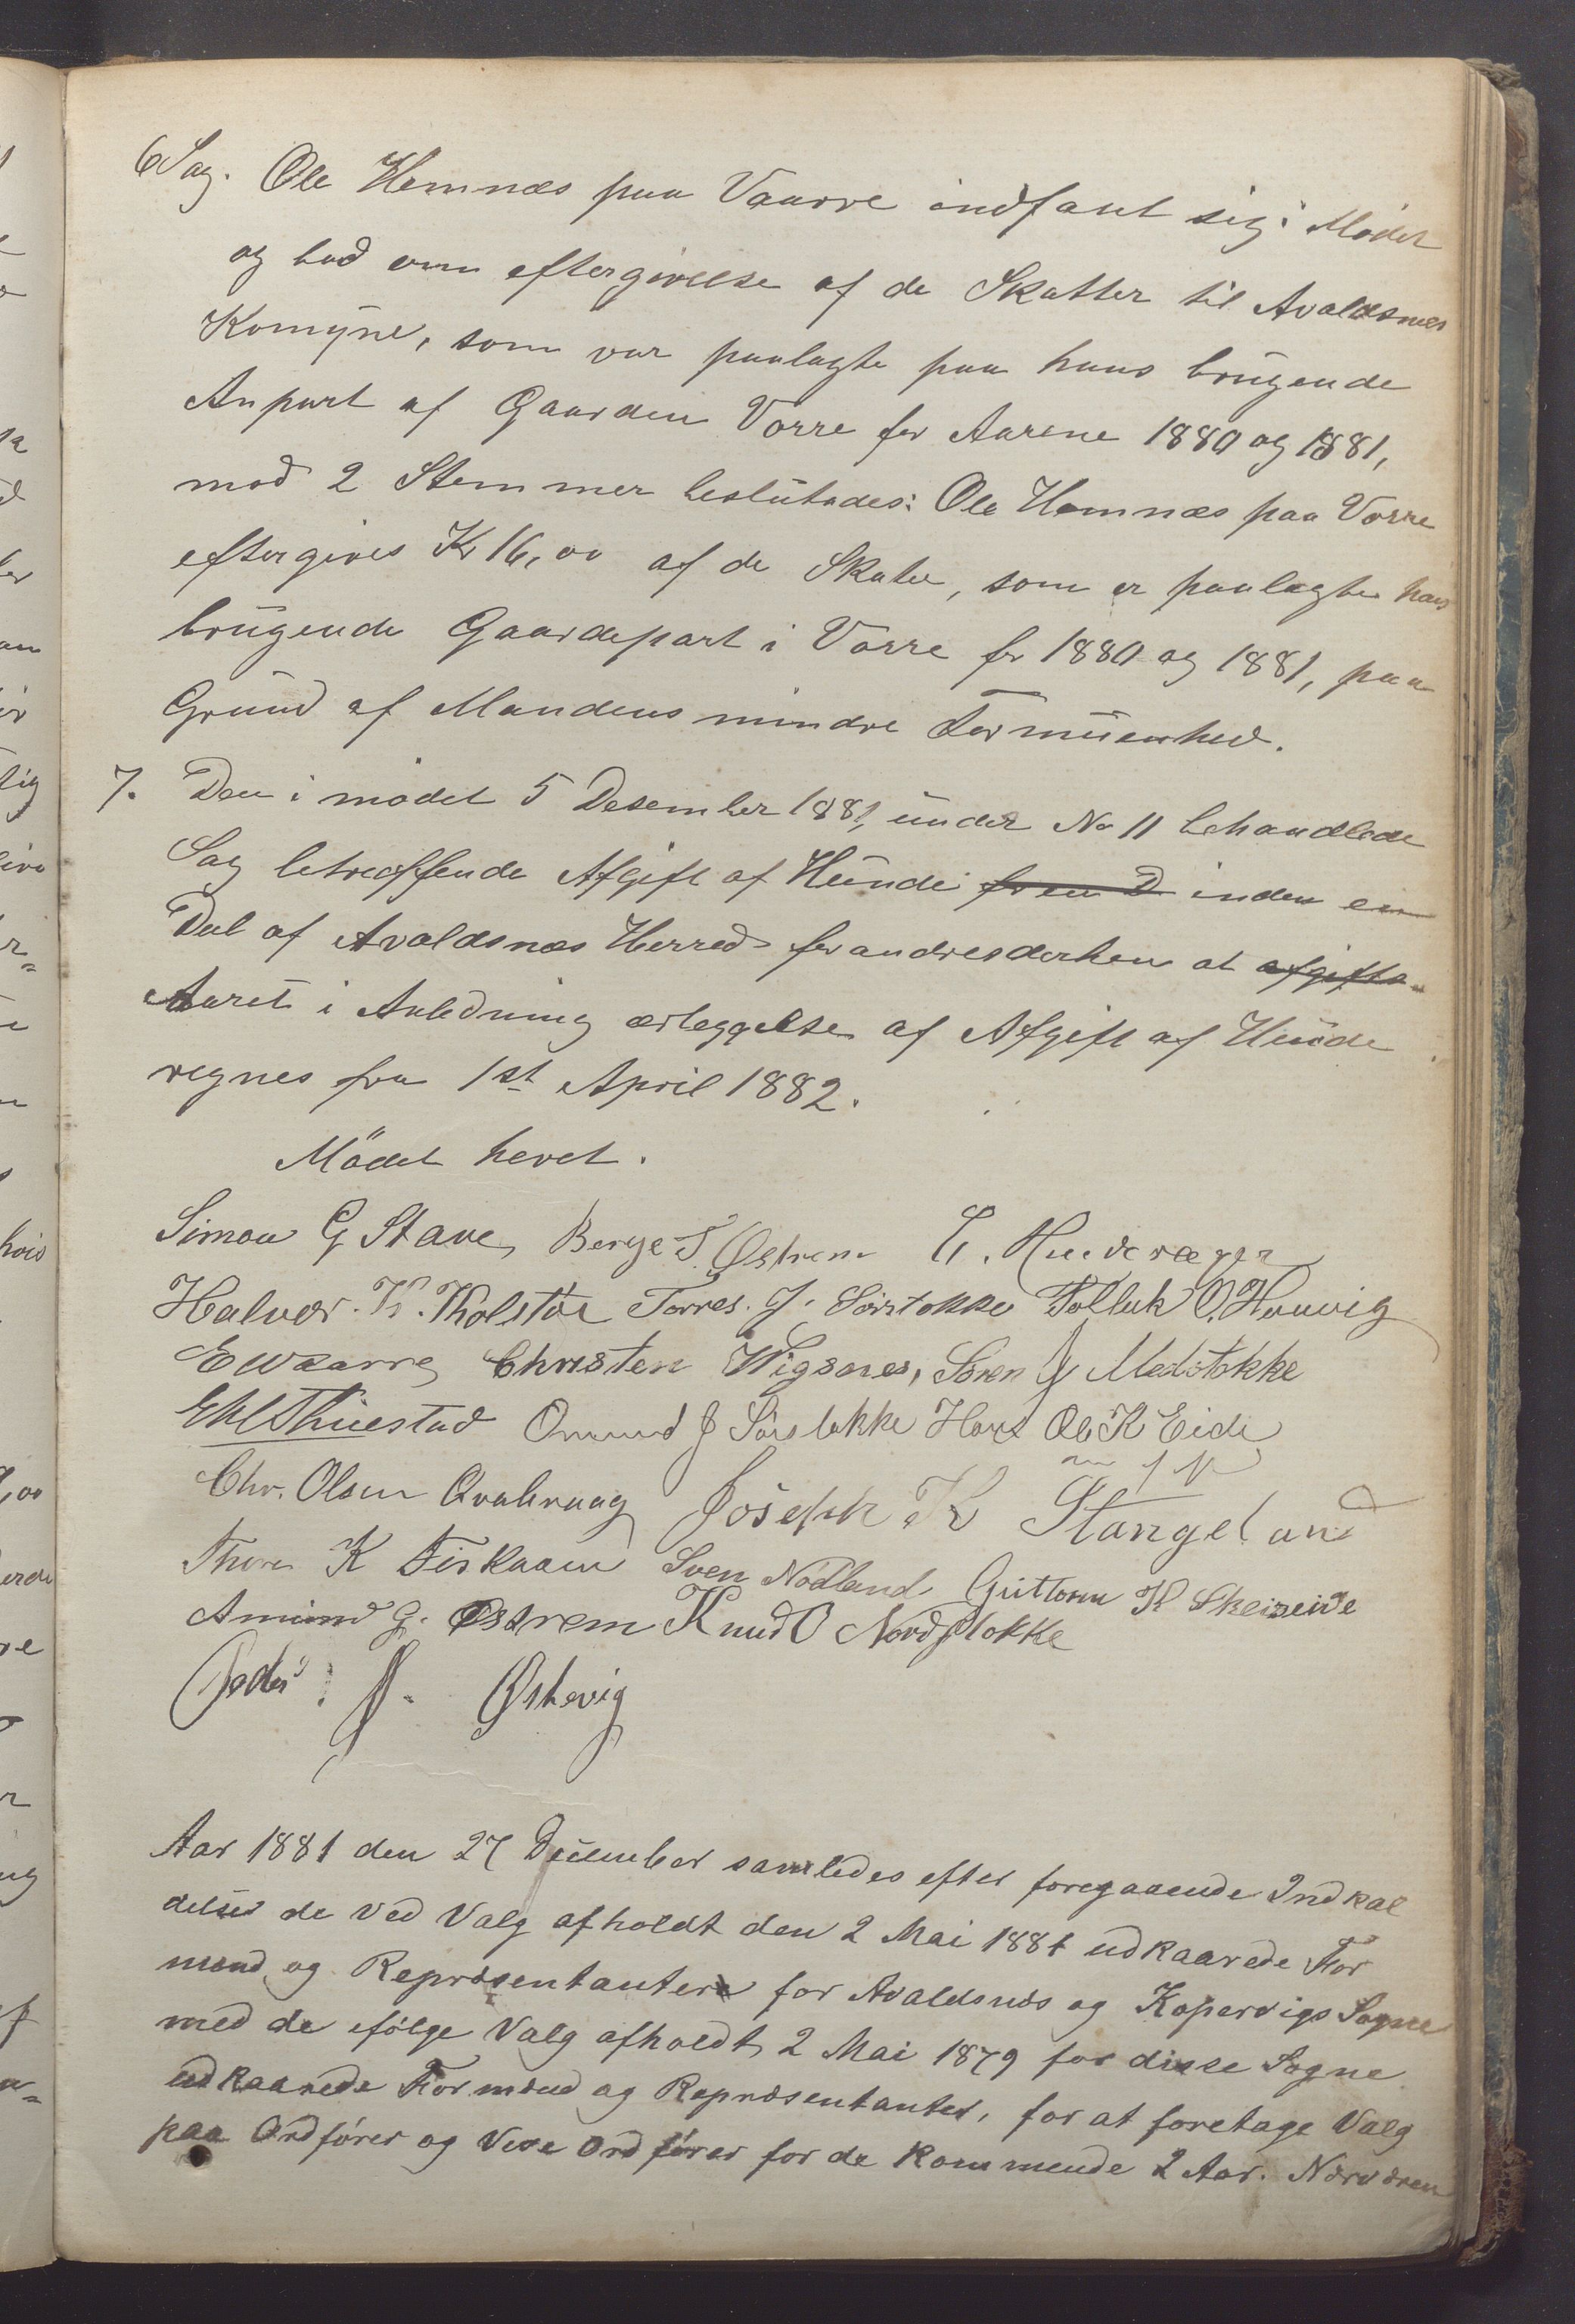 6 Sag. Ole Hemnæs paa Vaarre indfant sig i Mödet
og bad om eftergivelse af de Skatter til Avaldsnæs
Komyne, som var paalagte paa hans brugende
Anpart af Gaarden Vorre for Aarene 1880 og 1881,
mod 2 Stemmer beslutades: Ole Hemnæs paa Vorre
eftergives Kr 16,00 af de Skater, som er paalagte hans
brugende Gaardepart i Vorre for 1880 og 1881, paa
Grund af Mandens mindre Formuenhed.
7. Den i mödet 5 Desember 1881, under No 11 behandlede
Sag betreffende Afgift af Hunde for en D inden en
Del af Avaldsnæs Herred forandres derhen at afgifts
Aaret i Anledning erleggelse af Afgift af Hunde
regnes fra 1st April 1882.
Mödet hevet.
Simon G Stave, Berge T. Østrem
Halvor. K. Kolstöe Torres. J. Sörstokke Tollak O. Hauvig
E Waarre Christen Wigsnes, Sören J Medstokke
Thuestad Omund J Sörstokke Ole K Eide
m f P
Chr. Olsen Qvalevaag Joseph K Stangeland
Thore K Fiskaaen Sven Nodland Guttorm K Skeiseide
Amund G. Østrem Knud O Nordstokke
Peder P. Østevig
Aar 1881 den 27 December samledes efter foregaaende Indkal
delse de ved Valg afholdt den 2 Mai 1881 udkaarede For
mænd og Repræsentantere for Avaldsnæs og Kopervigs Sogne
med de efölge Valg afholdt 2 Mai 1879 for disse Sogne
udkaarede Formænd og Repræsentanter, for at foretage Valg
paa Ordförer og Vise Ordförer for de kommende 2 Aar. Nærværen